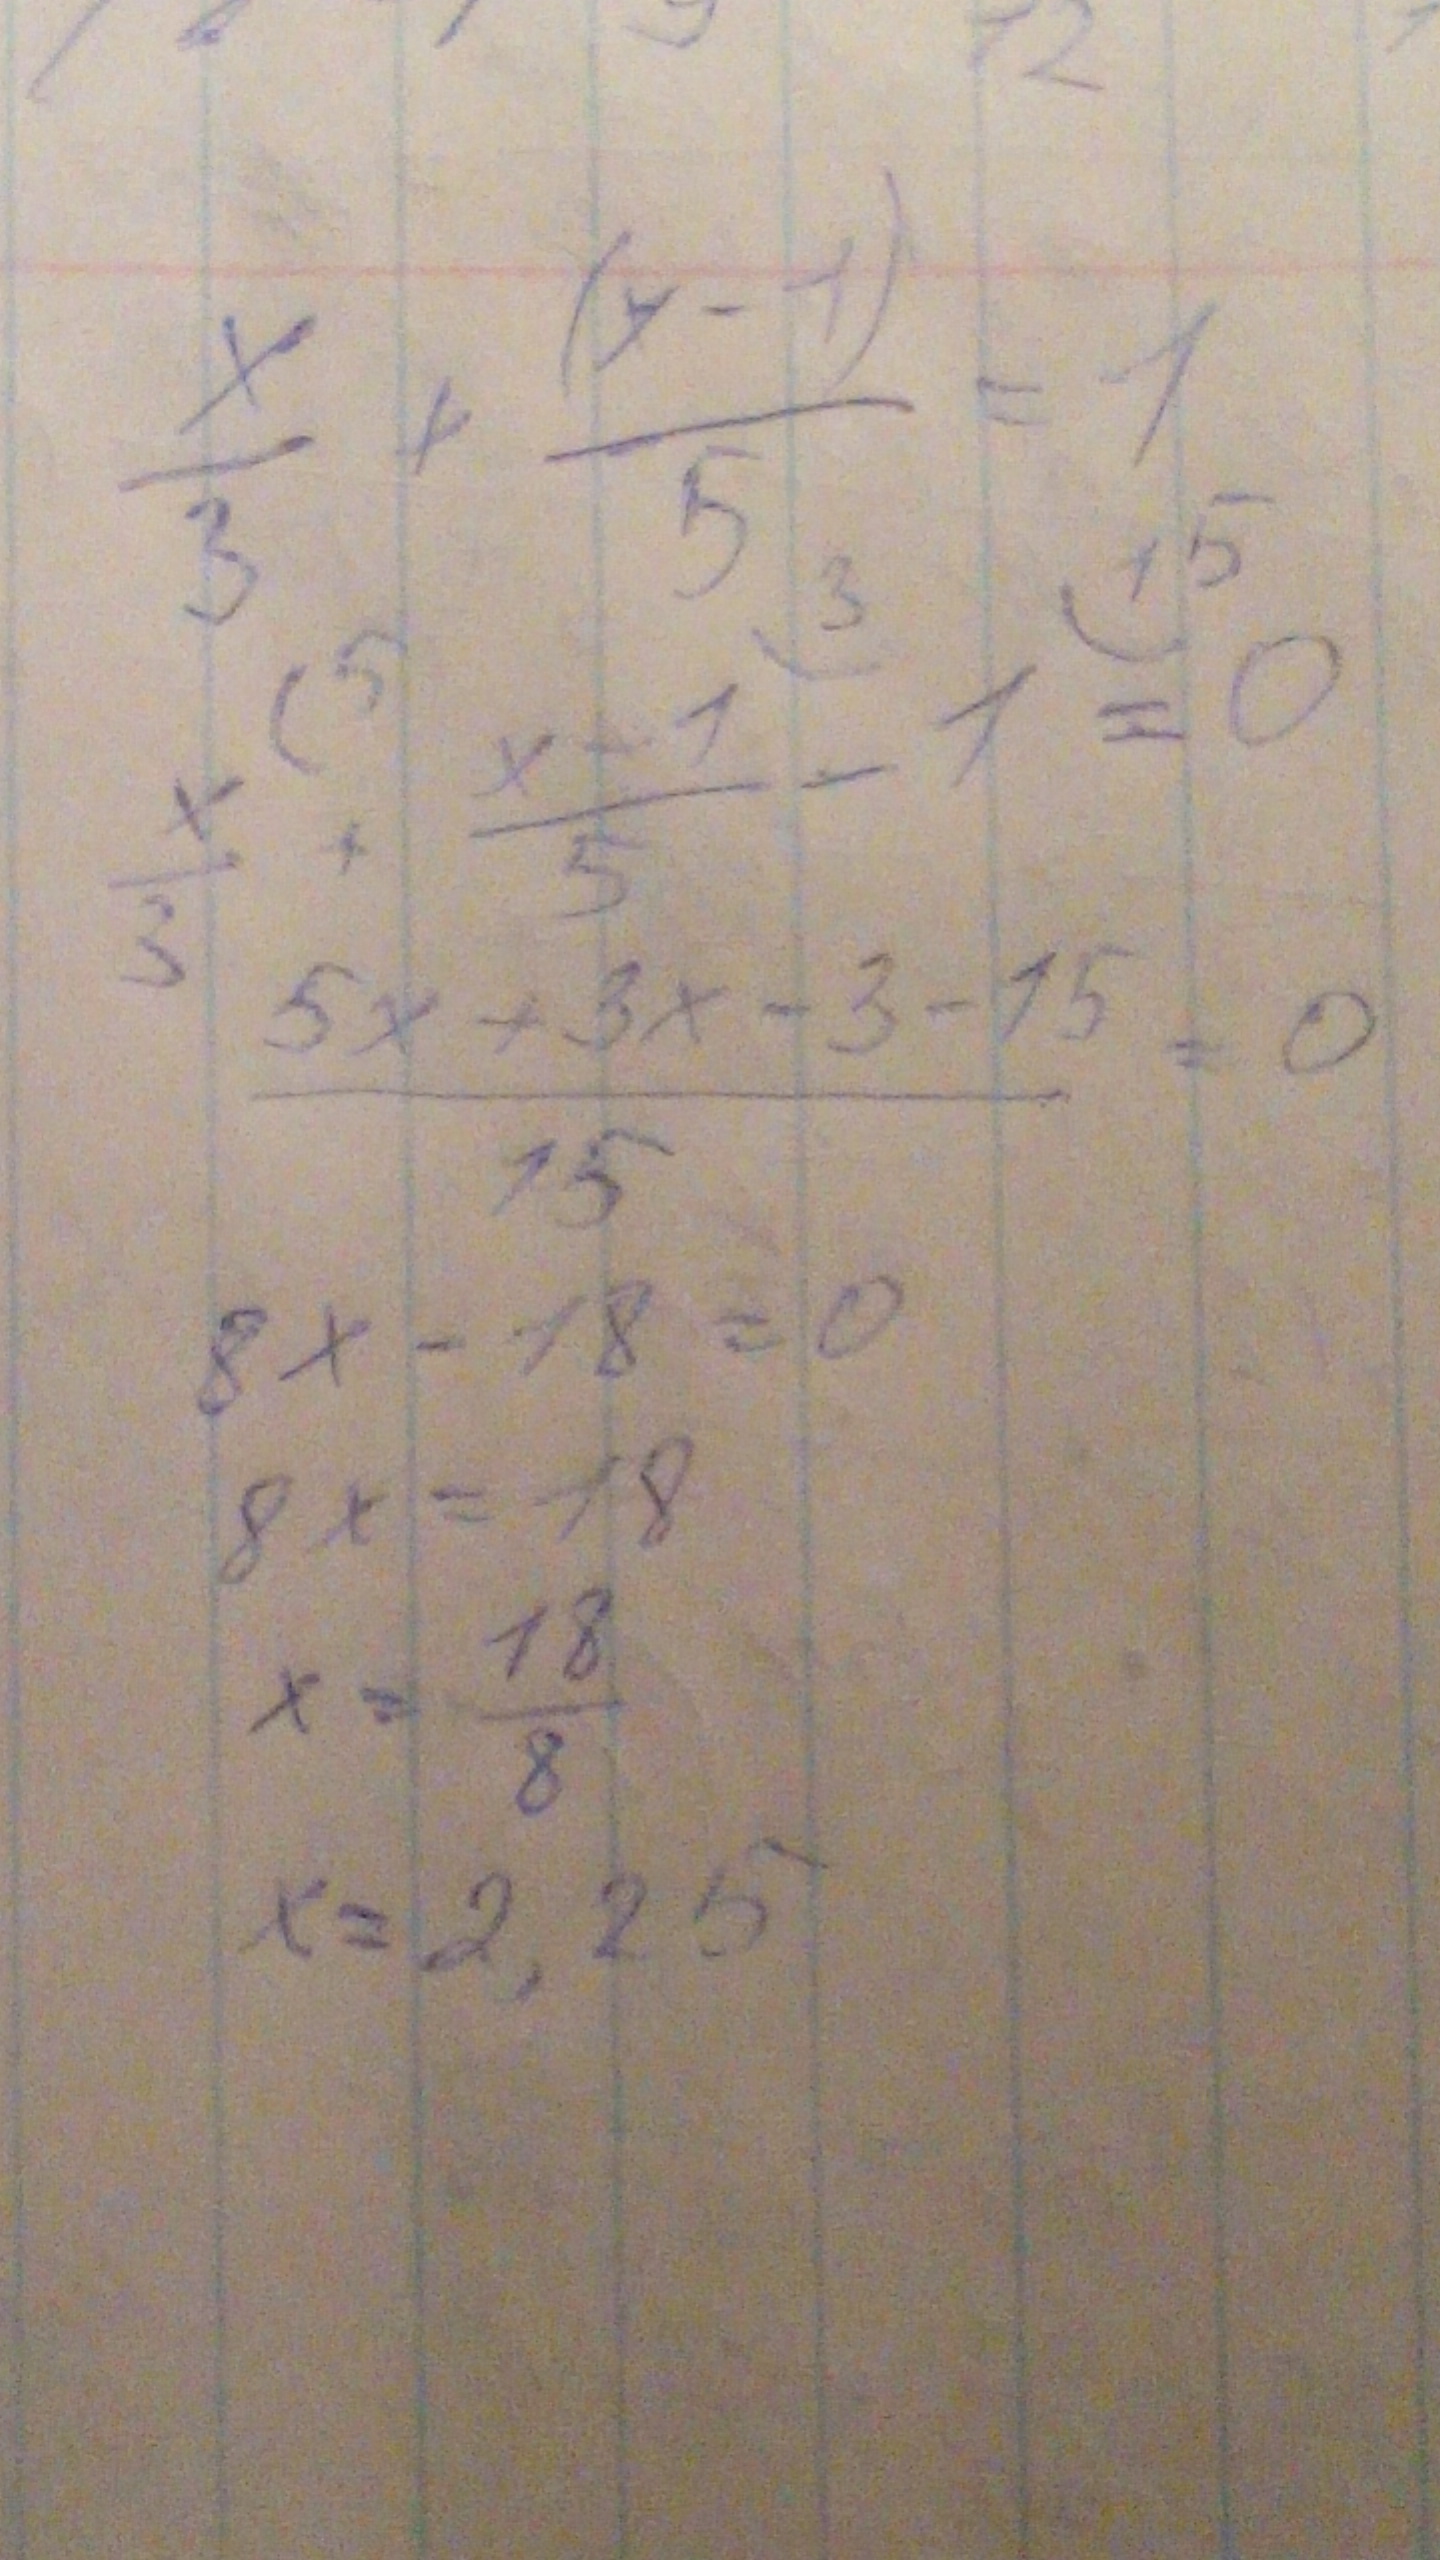 x/3 + (x-1)/5 = 1
x/3 (5 + x-1/5 (3 - 1 (15 = 0
5x+3x-3-15/15 = 0
8x-18=0
8x=18
x=18/8
x=2,25